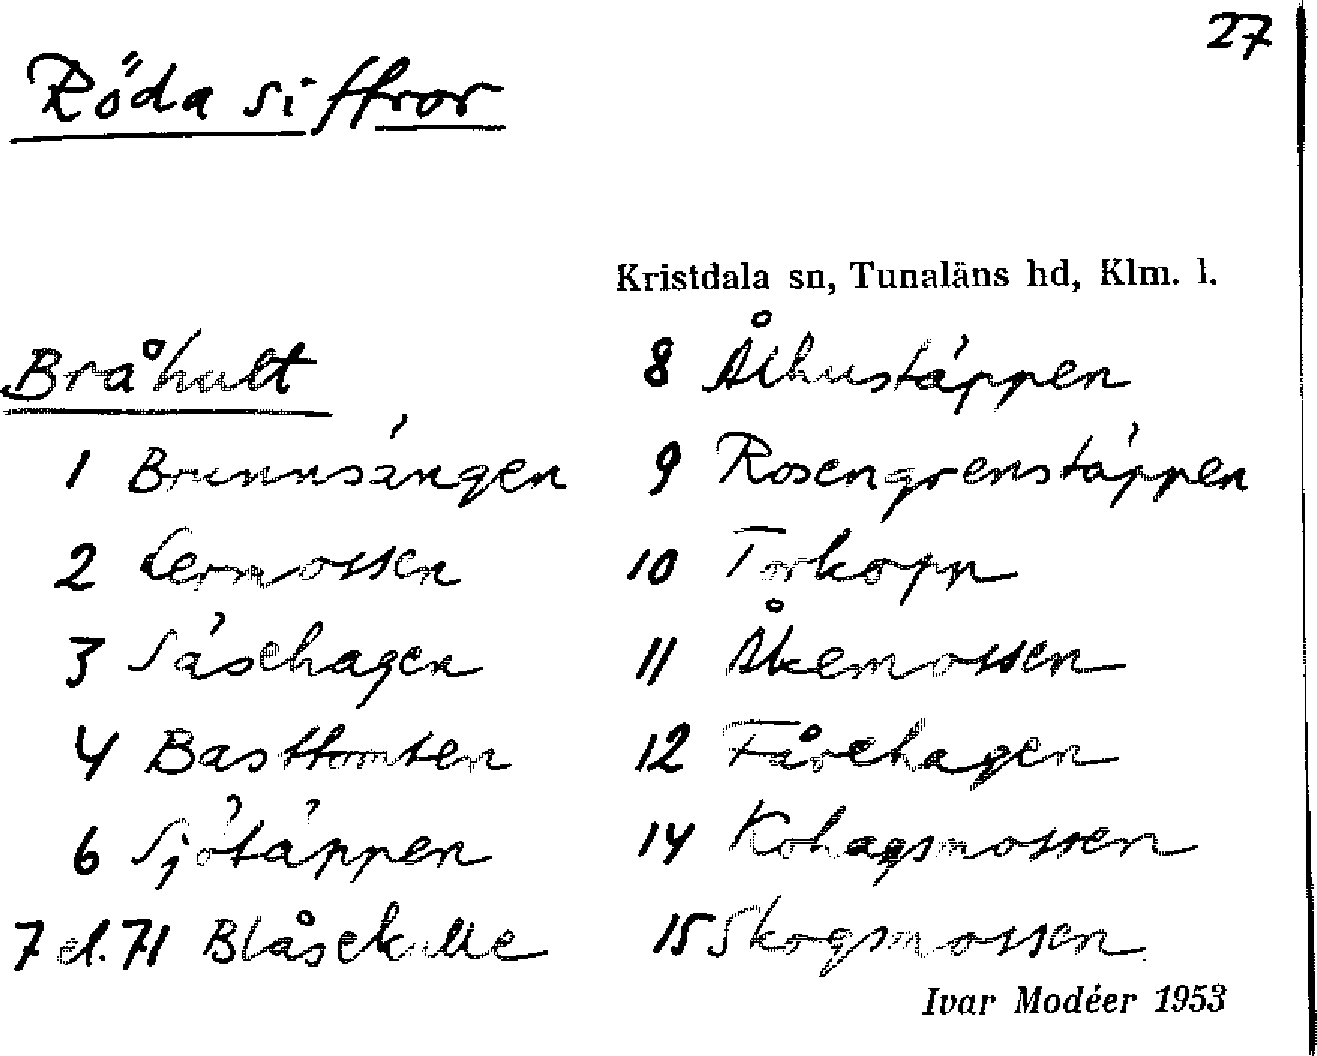 27
Röda siffror
Kristdala sn, Tunaläns hd, Klm. l.
Bråhult
1 Brunnsängen
2 Lermossen
3 Såsehagen
4 Basttomten
6 Sjötäppen
7 el. 71 Blåsekulle
8 Ålhustäppen
9 Rosengrenstäppen
10 Torkopn
11 Åkemossen
12 Fårehagen
14 Kohagsmossen
15 Skogsmossen
Ivar Modéer 1953